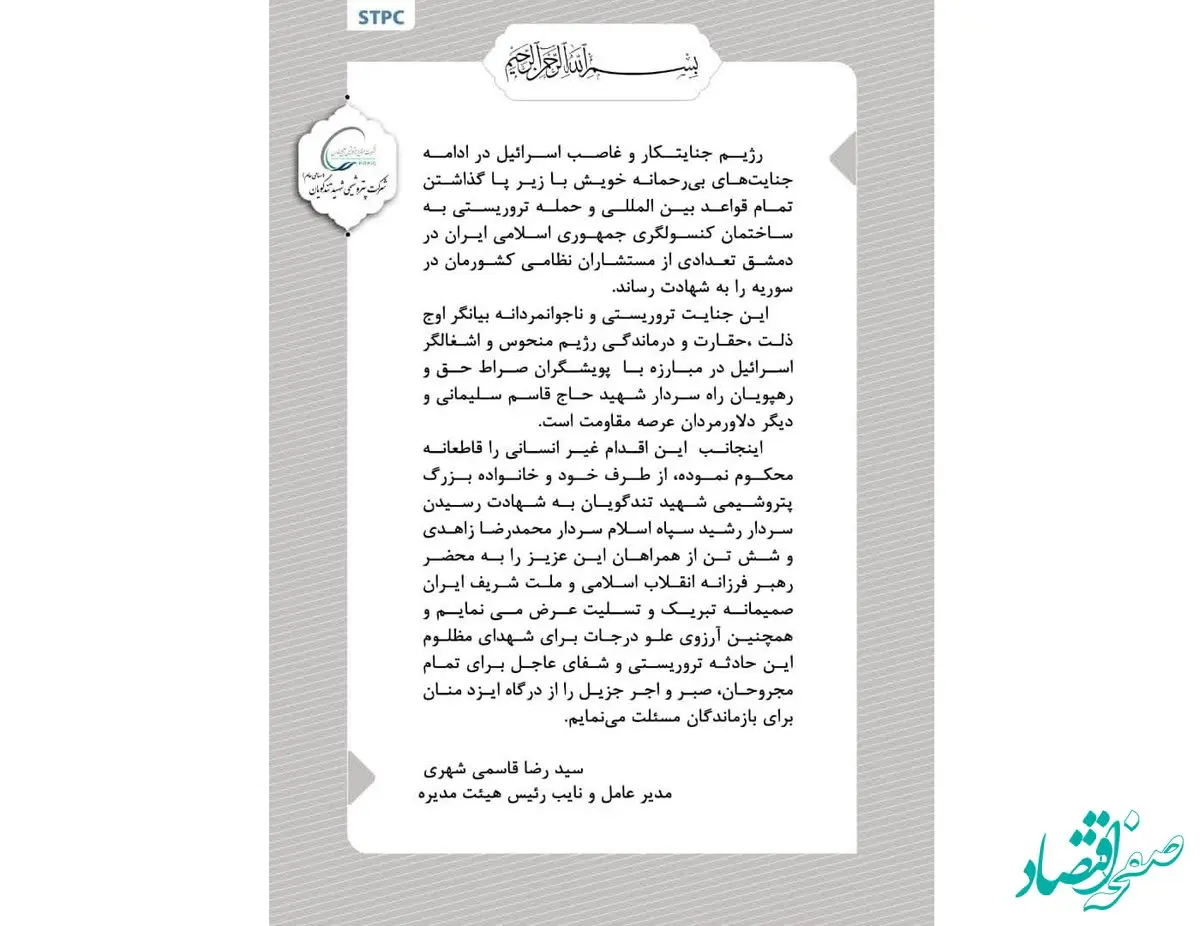 STPC
بسم الله الرحمن الرحیم
شرکت پتروشیمی شهید تندگویان
(سهامی عام)
رژیم جنایتکار و غاصب اسرائیل در ادامه
جنایت‌های بی‌رحمانه خویش با زیر پا گذاشتن
تمام قواعد بین المللی و حمله تروریستی به
ساختمان کنسولگری جمهوری اسلامی ایران در
دمشق تعدادی از مستشاران نظامی کشورمان در
سوریه را به شهادت رساند.
این جنایت تروریستی و ناجوانمردانه بیانگر اوج
ذلت ،حقارت و درماندگی رژیم منحوس و اشغالگر
اسرائیل در مبارزه با پویشگران صراط حق و
رهپویان راه سردار شهید حاج قاسم سلیمانی و
دیگر دلاورمردان عرصه مقاومت است.
اینجانب این اقدام غیر انسانی را قاطعانه
محکوم نموده، از طرف خود و خانواده بزرگ
پتروشیمی شهید تندگویان به شهادت رسیدن
سردار رشید سپاه اسلام سردار محمدرضا زاهدی
و شش تن از همراهان این عزیز را به محضر
رهبر فرزانه انقلاب اسلامی و ملت شریف ایران
صمیمانه تبریک و تسلیت عرض می نمایم و
همچنین آرزوی علو درجات برای شهدای مظلوم
این حادثه تروریستی و شفای عاجل برای تمام
مجروحان، صبر و اجر جزیل را از درگاه ایزد منان
برای بازماندگان مسئلت می‌نمایم.
سید رضا قاسمی شهری
مدیر عامل و نایب رئیس هیئت مدیره
صفحه اقتصاد